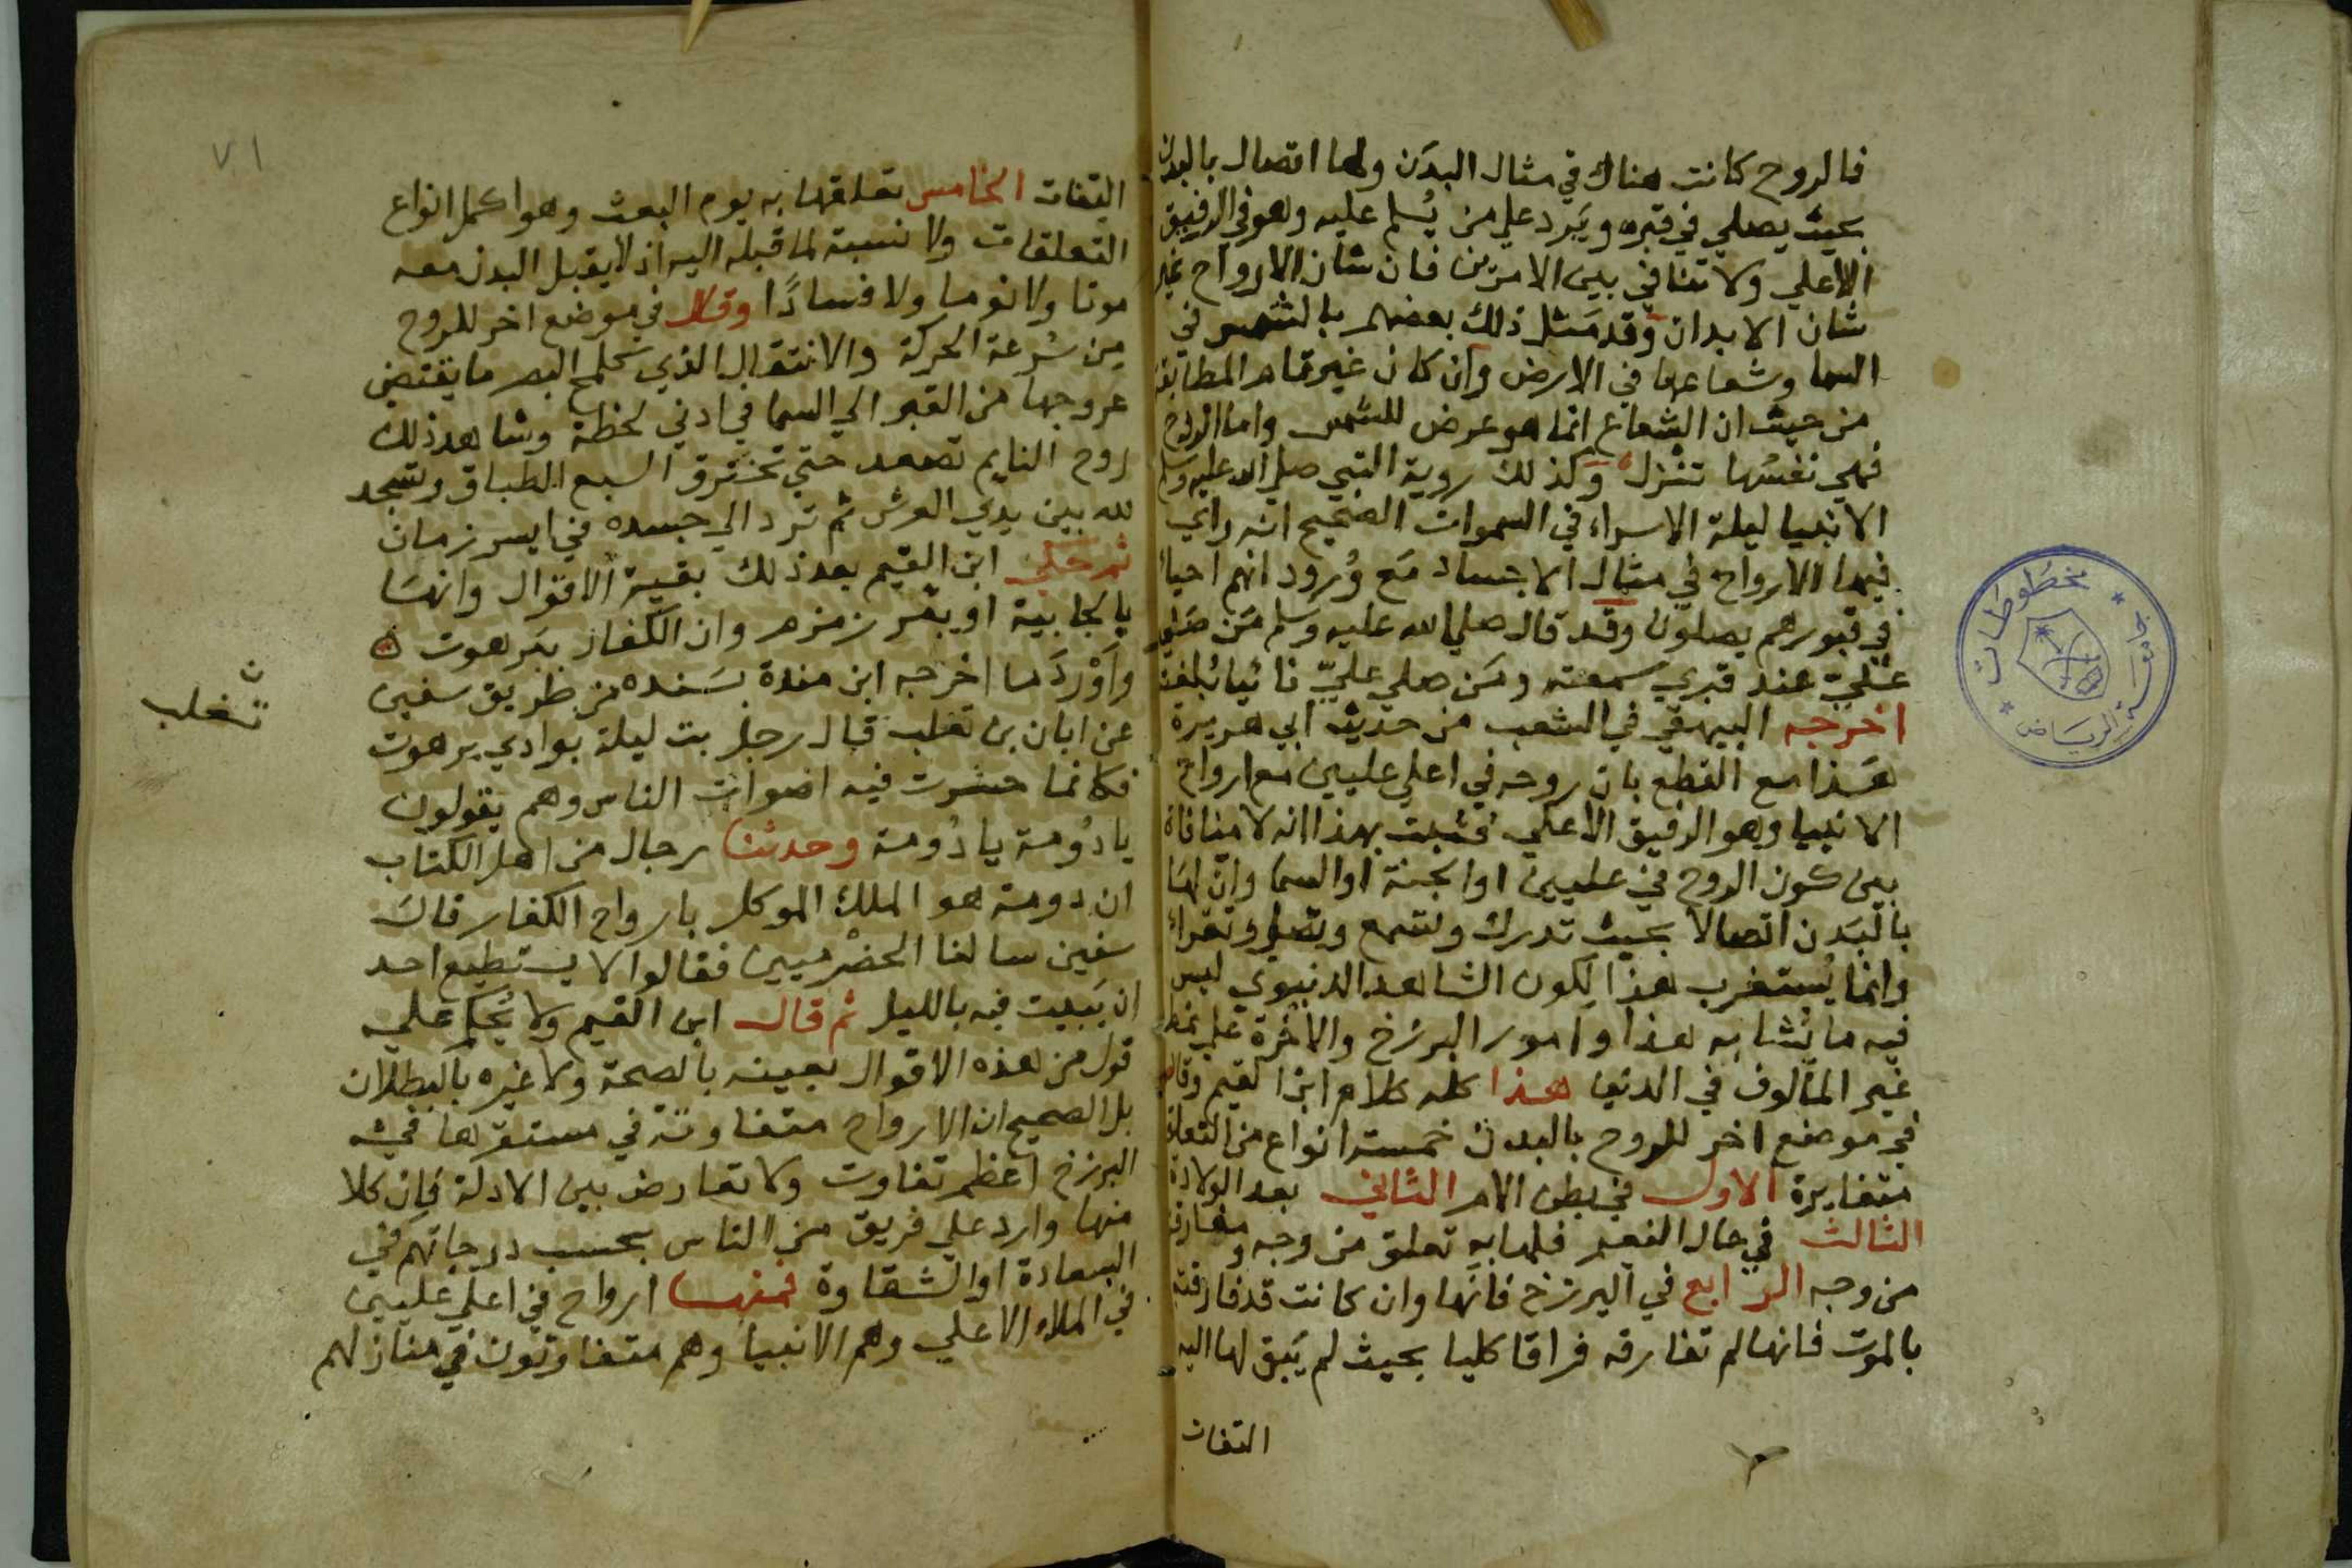 فالروح كانت هناك في مثال البدن ولها اتصال بالبدن
بحيث يصلي في قبره ويرد علي من يسلم عليه وهو في الرفيق
الاعلي ولا تنافي بين الامرين فان شان الارواح غير
شان الابدان وقد مثل ذلك بعضهم بالشمس في
السما وشعاعها في الارض وان كان غير تام المطابقة
من حيث ان الشعاع انما هو عرض للشمس واما الروح
فهي نفسها تنزل وكذلك روية النبي صلي الله عليه وسلم
الانبيا ليلة الاسراء في السموات الصحيح انه راي
فيها الارواح في مثال الاجساد مع ورود انهم احيا
في قبورهم يصلون وقد قال صلي الله عليه وسلم من صلي
علي عند قبري سمعته ومن صلي علي نائيا بلغته
اخرجه البيهقي في الشعب من حديث ابي هريرة
هذا مع القطع بان روحه في اعلي عليين مع ارواح
الانبيا وهو الرفيق الاعلي فثبت بهذا انه لا منافاة
بين كون الروح في عليين او الجنة او السما وان لها
بالبدن اتصالا بحيث تدرك وتسمع وتصلي وتقرا
وانما يستغرب هذا لكون الشاهد الدنيوي ليس
فيه ما يشابه هذا وامور البرزخ والاخرة علي نمط
غير المالوف في الدنيا هذا كله كلام ابن القيم وقال
في موضع اخر للروح بالبدن خمسة انواع من التعلق
متغايرة الاول في بطن الام الثاني بعد الولادة
الثالث في حال النعيم فلها به تعلق من وجه ومفارقة
من وجه الرابع في البرزخ فانها وان كانت قد فارقته
بالموت فانها لم تفارقه فراقا كليا بحيث لم يبق لها اليه
التفات
٧١
التفات الخامس تعلقها به يوم البعث وهو اكمل انواع
التعلقات ولا نسبة لما قبله اليه اذ لا يقبل البدن معه
موتا ولا نوما ولا فسادا وقال في موضع اخر للروح
من سرعة الحركة والانتقال الذي كلمح البصر ما يقتضي
عروجها من القبر الي السما في ادني لحظة وشاهد ذلك
روح النايم تصعد حتي تخترق السبع الطباق وتسجد
لله بين يدي العرش ثم ترد الي جسده في ايسر زمان
ثم حكي ابن القيم بعد ذلك بقية الاقوال وانها
بالجابية او ببئر زمزم وان الكفار ببرهوت
واورد ما اخرجه ابن مندة بسنده من طريق سفين
عن ابان بن تغلب قال رجل بت ليلة بوادي برهوت
فكانما حشرت فيه اصوات الناس وهم يقولون
يا دومة يا دومة وحدثنا رجال من اهل الكتاب
ان دومة هو الملك الموكل بارواح الكفار قال
سفين سالنا الحضرميين فقالوا لا يستطيع احد
ان يبيت فيه بالليل ثم قال ابن القيم ولا يحكم علي
قول من هذه الاقوال بعينه بالصحة ولا غيره بالبطلان
بل الصحيح ان الارواح متفاوتة في مستقرها في
البرزخ اعظم تفاوت ولا تعارض بين الادلة فان كلا
منها وارد علي فريق من الناس بحسب درجاتهم في
السعادة او الشقاوة فمنها ارواح في اعلي عليين
في الملاء الاعلي وهم الانبيا وهم متفاوتون في منازلهم
تغلب
مخطوطات
جامعة الرياض